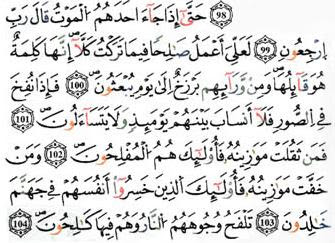 ﴿98﴾ حَتَّىٰ إِذَا جَآءَ أَحَدَهُمُ ٱلْمَوْتُ قَالَ رَبِّ
ٱرْجِعُونِ ﴿99﴾ لَعَلِّىٓ أَعْمَلُ صَٰلِحًا فِيمَا تَرَكْتُ كَلَّآ إِنَّهَا كَلِمَةٌ
هُوَ قَآئِلُهَا وَمِن وَرَآئِهِم بَرْزَخٌ إِلَىٰ يَوْمِ يُبْعَثُونَ ﴿100﴾ فَإِذَا نُفِخَ
فِى ٱلصُّورِ فَلَآ أَنسَابَ بَيْنَهُمْ يَوْمَئِذٍ وَلَا يَتَسَآءَلُونَ ﴿101﴾
فَمَن ثَقُلَتْ مَوَٰزِينُهُۥ فَأُو۟لَٰٓئِكَ هُمُ ٱلْمُفْلِحُونَ ﴿102﴾ وَمَنْ
خَفَّتْ مَوَٰزِينُهُۥ فَأُو۟لَٰٓئِكَ ٱلَّذِينَ خَسِرُوٓا۟ أَنفُسَهُمْ فِى جَهَنَّمَ
خَٰلِدُونَ ﴿103﴾ تَلْفَحُ وُجُوهَهُمُ ٱلنَّارُ وَهُمْ فِيهَا كَٰلِحُونَ ﴿104﴾